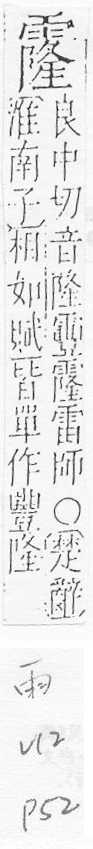 霳
良中切音隆靊霳雷師○楚辭
淮南子相如賦皆單作豐隆
雨
V12
P52